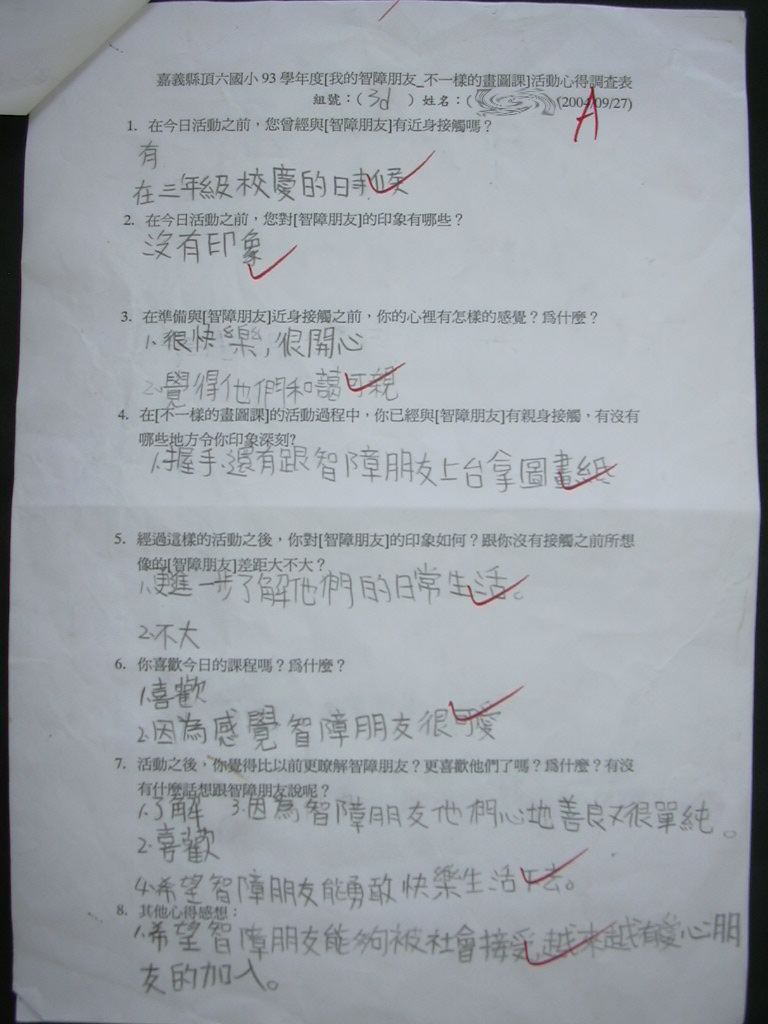 嘉義縣頂六國小93學年度[我的智障朋友_不一樣的畫圖課]活動心得調查表
組號：( 3d ) 姓名：( (2004/09/27)
A
1. 在今日活動之前，您曾經與[智障朋友]有近身接觸嗎？
有
在三年級校慶的日時候
2. 在今日活動之前，您對[智障朋友]的印象有哪些？
沒有印象
3. 在準備與[智障朋友]近身接觸之前，你的心裡有怎樣的感覺？爲什麼？
1.很快樂，很開心
2.覺得他們和藹可親
4. 在[不一樣的畫圖課]的活動過程中，你已經與[智障朋友]有親身接觸，有沒有
哪些地方令你印象深刻?
1.握手、還有跟智障朋友上台拿圖畫紙
5. 經過這樣的活動之後，你對[智障朋友]的印象如何？跟你沒有接觸之前所想
像的[智障朋友]差距大不大？
1.更進一步了解他們的日常生活。
2.不大
6. 你喜歡今日的課程嗎？爲什麼？
1.喜歡
2.因為感覺智障朋友很可愛
7. 活動之後，你覺得比以前更瞭解智障朋友？更喜歡他們了嗎？爲什麼？有沒
有什麼話想跟智障朋友說呢？
1.了解 3.因為智障朋友他們心地善良又很單純。
2.喜歡
4.希望智障朋友能勇敢快樂生活下去。
8. 其他心得感想：
1.希望智障朋友能夠被社會接受，越來越有愛心朋
友的加入。